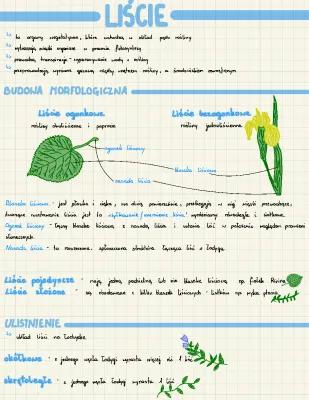 LIŚCIE
to organy wegetatywne, które wchodzą w skład pędu rośliny
wytwarzają związki organiczne w procesie fotosyntezy
prowadzą transpirację - wyparowywanie wody z rośliny
przeprowadzają wymianę gazową między wnętrzem rośliny, a środowiskiem zewnętrznym
BUDOWA MORFOLOGICZNA
Liście ogonkowe
Liście bezogonkowe
rośliny dwuliścienne i paprocie
rośliny jednoliścienne
ogonek liściowy
blaszka liściowa
nasada liścia
Blaszka liściowa - jest płaska i cienka, ma dużą powierzchnię,
liścia jest to
Ogonek liściowy - łączy blaszkę liściową z nasadą liścia i ustawia liść w położeniu względem promieni
słonecznych.
Nasada liścia - to rozszerzona, spłaszczona struktura łącząca liść z łodygą.
Liście pojedyncze - mają jedną, niepodzielną lub nie blaszkę liściową np. fiołek
Liście złożone - są zbudowane z kilku blaszek liściowych - listków np. wyka ptasia
ULISTNIENIE
układ liści na łodydze
okółkowe - z jednego węzła łodygi wyrasta więcej niż 1 liść
skrętoległe - z jednego węzła łodygi wyrasta 1 liść